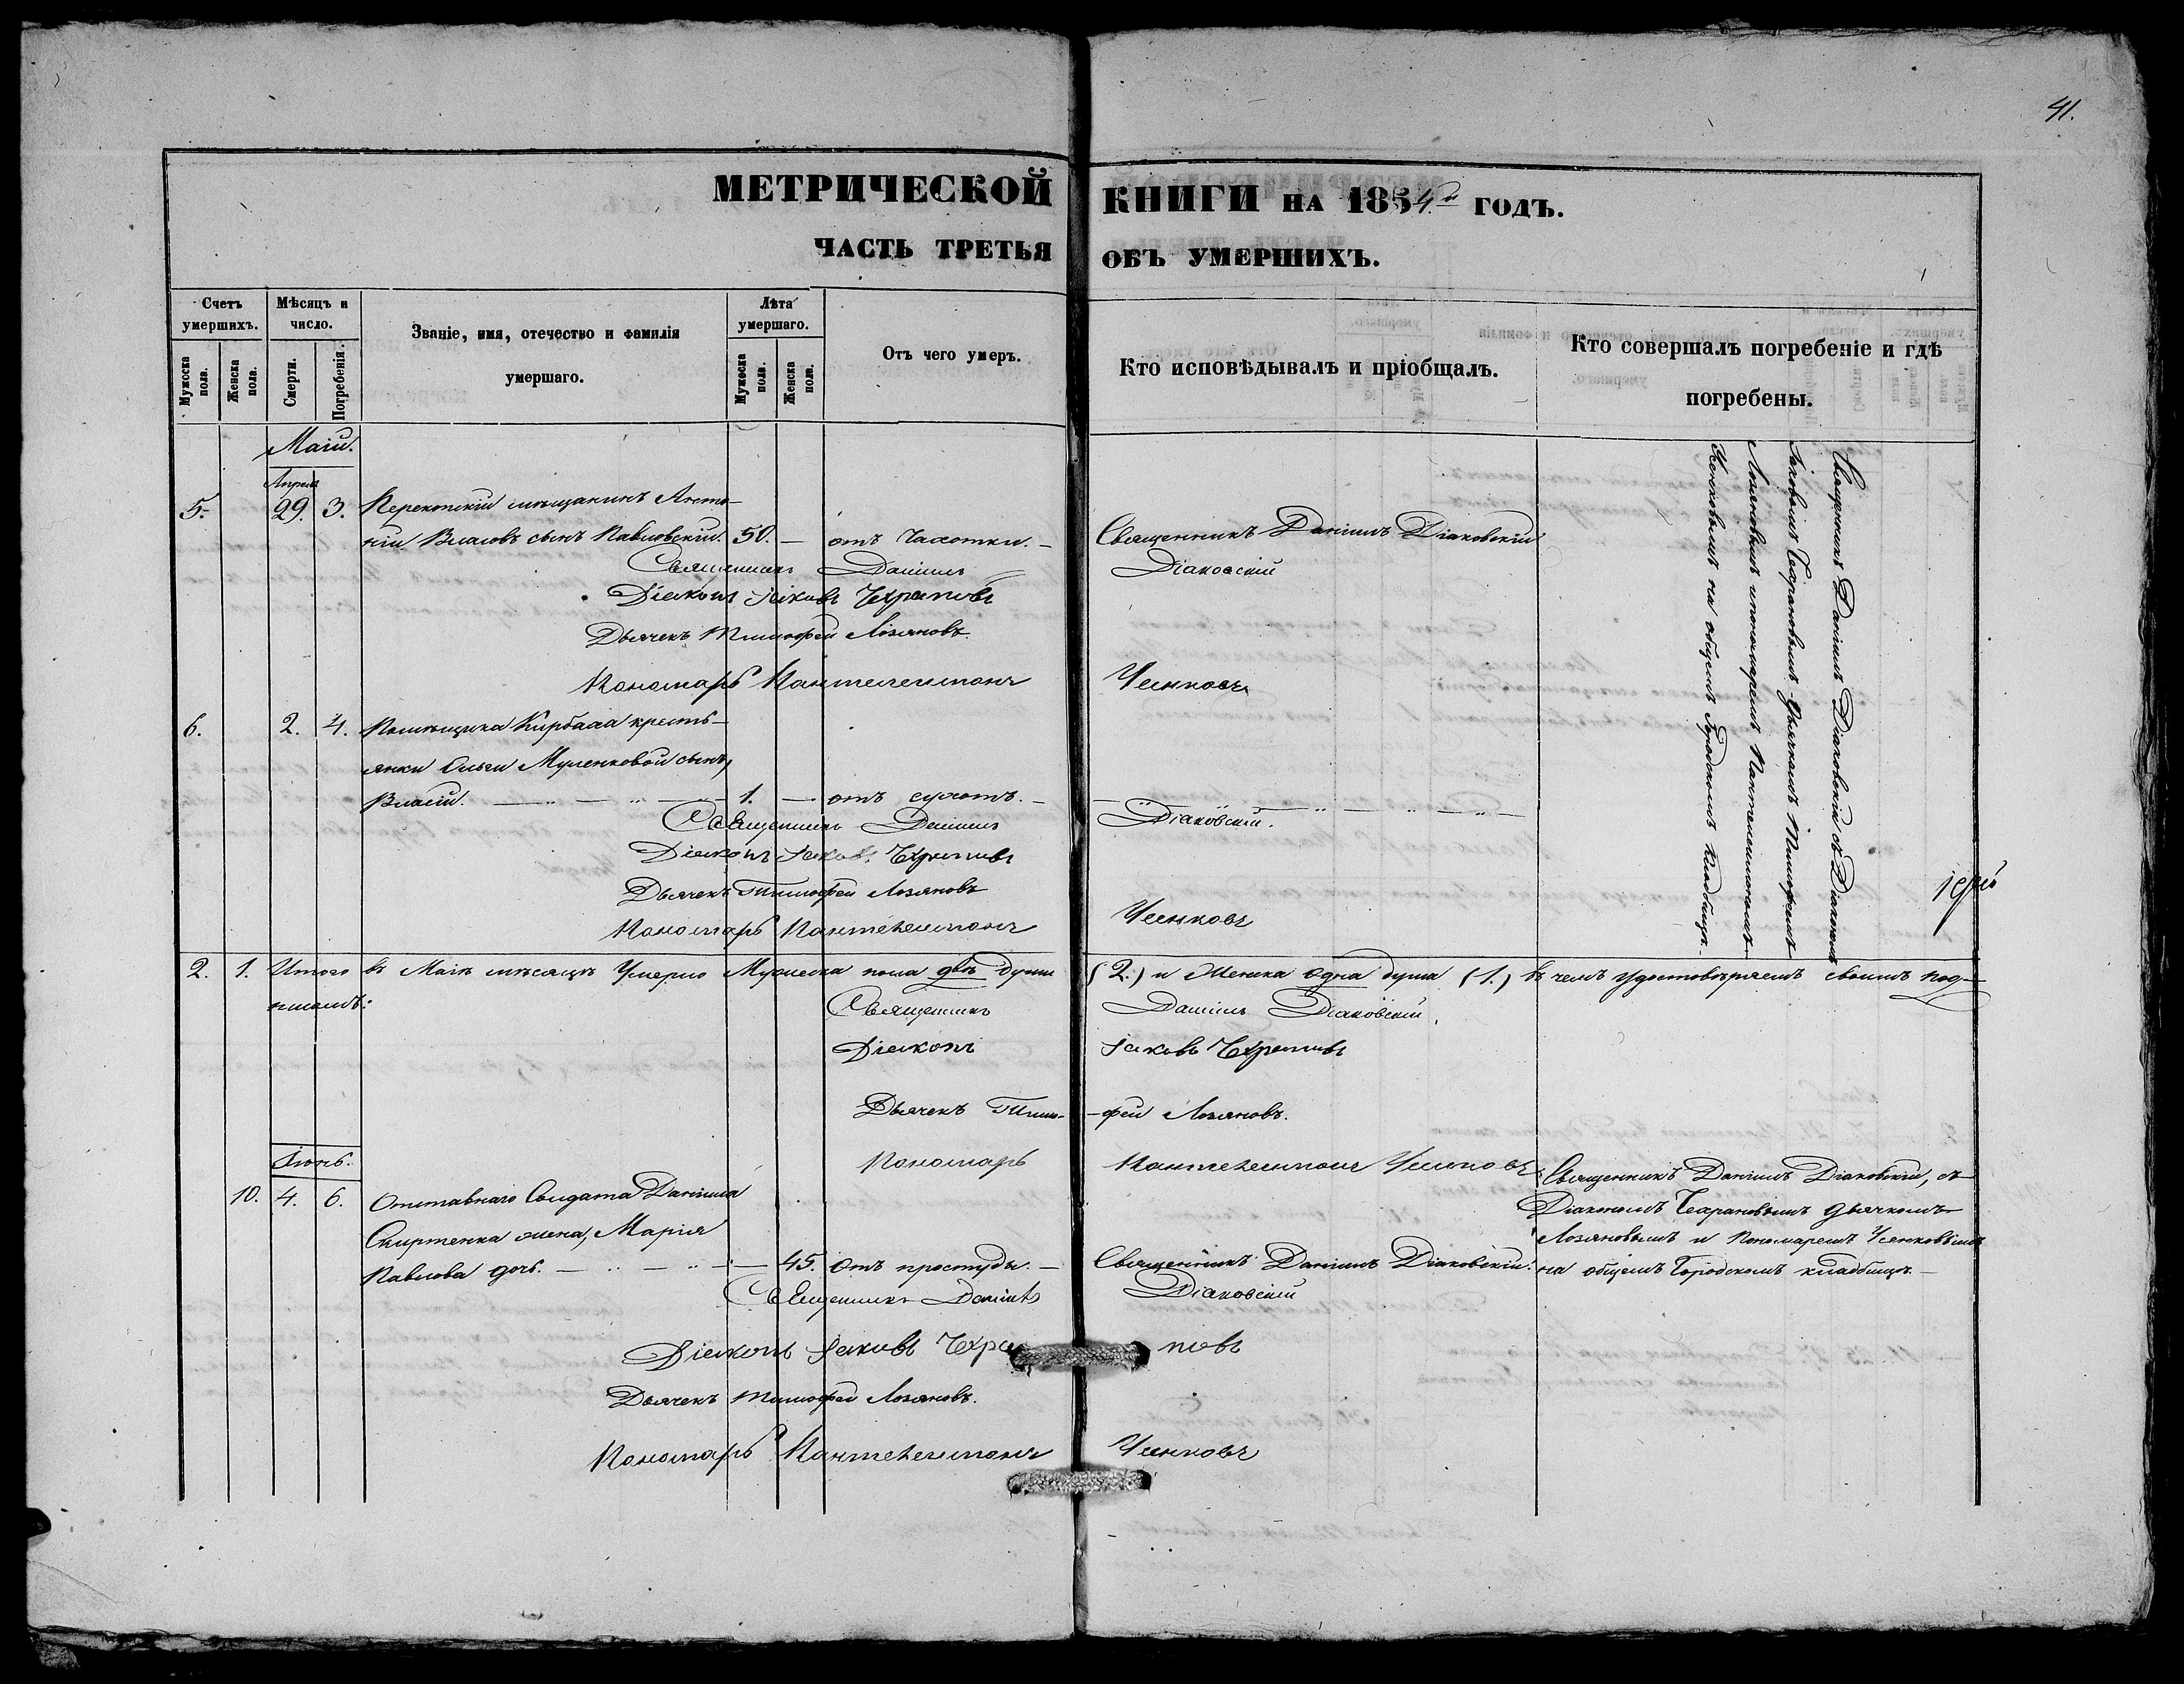 41.
МЕТРИЧЕСКОЙ КНИГИ НА 1854й ГОДЪ.
ЧАСТЬ ТРЕТЬЯ ОБЪ УМЕРШИХЪ.
Счетъ умершихъ.
Мужеска пола.
Женска пола.
Мѣсяцъ и число.
Смерти.
Погребенія.
Званіе, имя, отечество и фамилія умершаго.
Лѣта умершаго.
Мужеска пола.
Женска пола.
Отъ чего умеръ.
Кто исповѣдывалъ и пріобщалъ.
Кто совершалъ погребеніе и гдѣ погребены.
Маій.
Апреля
5. 29. 3. Перекопскій мѣщанинъ Анто-
ній Власовъ сынъ Павловскій. 50. — отъ Чахотки. — Священникъ Даніилъ Діаковскій
Священникъ Даніилъ Діаковскій
Діаконъ Іаковъ Чехрановъ
Дьячекъ Тимофей Лозановъ.
Пономарь Пантелеимонъ Ченковъ
6. 2. 4. Помѣщика Кирбаха кресть-
янки Ольги Муленковой сынъ,
Власій. — 1. — отъ сухотъ. —
Священникъ Даніилъ Діаковскій.
Діаконъ Іаковъ Чехрановъ
Дьячекъ Тимофей Лозановъ
Пономарь Пантелеимонъ Ченковъ
Священникъ Даніилъ Діаковскій съ Діакономъ
Іаковымъ Чехрановымъ дьячкомъ Тимофеемъ
Лозановымъ и пономаремъ Пантелеимономъ
Ченковымъ на общемъ Городскомъ кладбищѣ.
іерей
2. 1. Итого въ Маіѣ мѣсяцѣ Умерло Мужеска пола двѣ души (2.) и Женска одна душа (1.) въ чемъ удостовѣряемъ своимъ под-
писомъ:
Священникъ Даніилъ Діаковскій.
Діаконъ Іаковъ Чехрановъ
Дьячекъ Тимо- -фей Лозановъ.
Пономарь Пантелеимонъ Ченковъ
Іюнь.
10. 4. 6. Отставнаго Солдата Даніила
Скиртенка жена, Марія
Павлова дочь. — 45. Отъ простуды. — Священникъ Даніилъ Діаковскій.
Священникъ Даніилъ Діаковскій, съ
Діакономъ Чехрановымъ дьячкомъ
Лозановымъ и Пономаремъ Ченковымъ
на общемъ Городскомъ кладбищѣ. —
Священникъ Даніилъ Діаковскій
Діаконъ Іаковъ Чехра новъ
Дьячекъ Тимофей Лозановъ.
Пономарь Пантелеимонъ Ченковъ